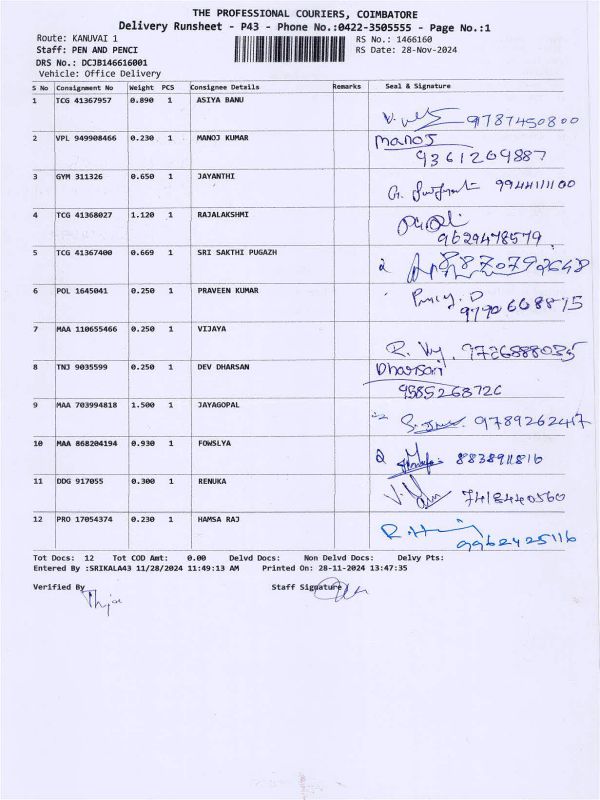 THE PROFESSIONAL COURIERS, COIMBATORE
Delivery Runsheet - P43 - Phone No.:0422-3505555 - Page No.:1
Route: KANUVAI 1 RS No.: 1466160
Staff: PEN AND PENCI RS Date: 28-Nov-2024
DRS No.: DCJB146616001
Vehicle: Office Delivery
S No Consignment No Weight PCS Consignee Details Remarks Seal & Signature
1 TCG 41367957 0.890 1 ASIYA BANU
9787450800
2 VPL 949908466 0.230 1 MANOJ KUMAR manoj
9361209887
3 GYM 311326 0.650 1 JAYANTHI
9944111100
4 TCG 41368027 1.120 1 RAJALAKSHMI
9629478579
5 TCG 41367400 0.669 1 SRI SAKTHI PUGAZH
6 POL 1645041 0.250 1 PRAVEEN KUMAR
7 MAA 110655466 0.250 1 VIJAYA
8 TNJ 9035599 0.250 1 DEV DHARSAN Dharsan
9 MAA 703994818 1.500 1 JAYAGOPAL
10 MAA 868204194 0.930 1 FOWSLYA
11 DDG 917055 0.300 1 RENUKA
7418440560
12 PRO 17054374 0.230 1 HAMSA RAJ
9962425116
Tot Docs: 12 Tot COD Amt: 0.00 Delvd Docs: Non Delvd Docs: Delvy Pts:
Entered By :SRIKALA43 11/28/2024 11:49:13 AM Printed On: 28-11-2024 13:47:35
Verified By Staff Signature